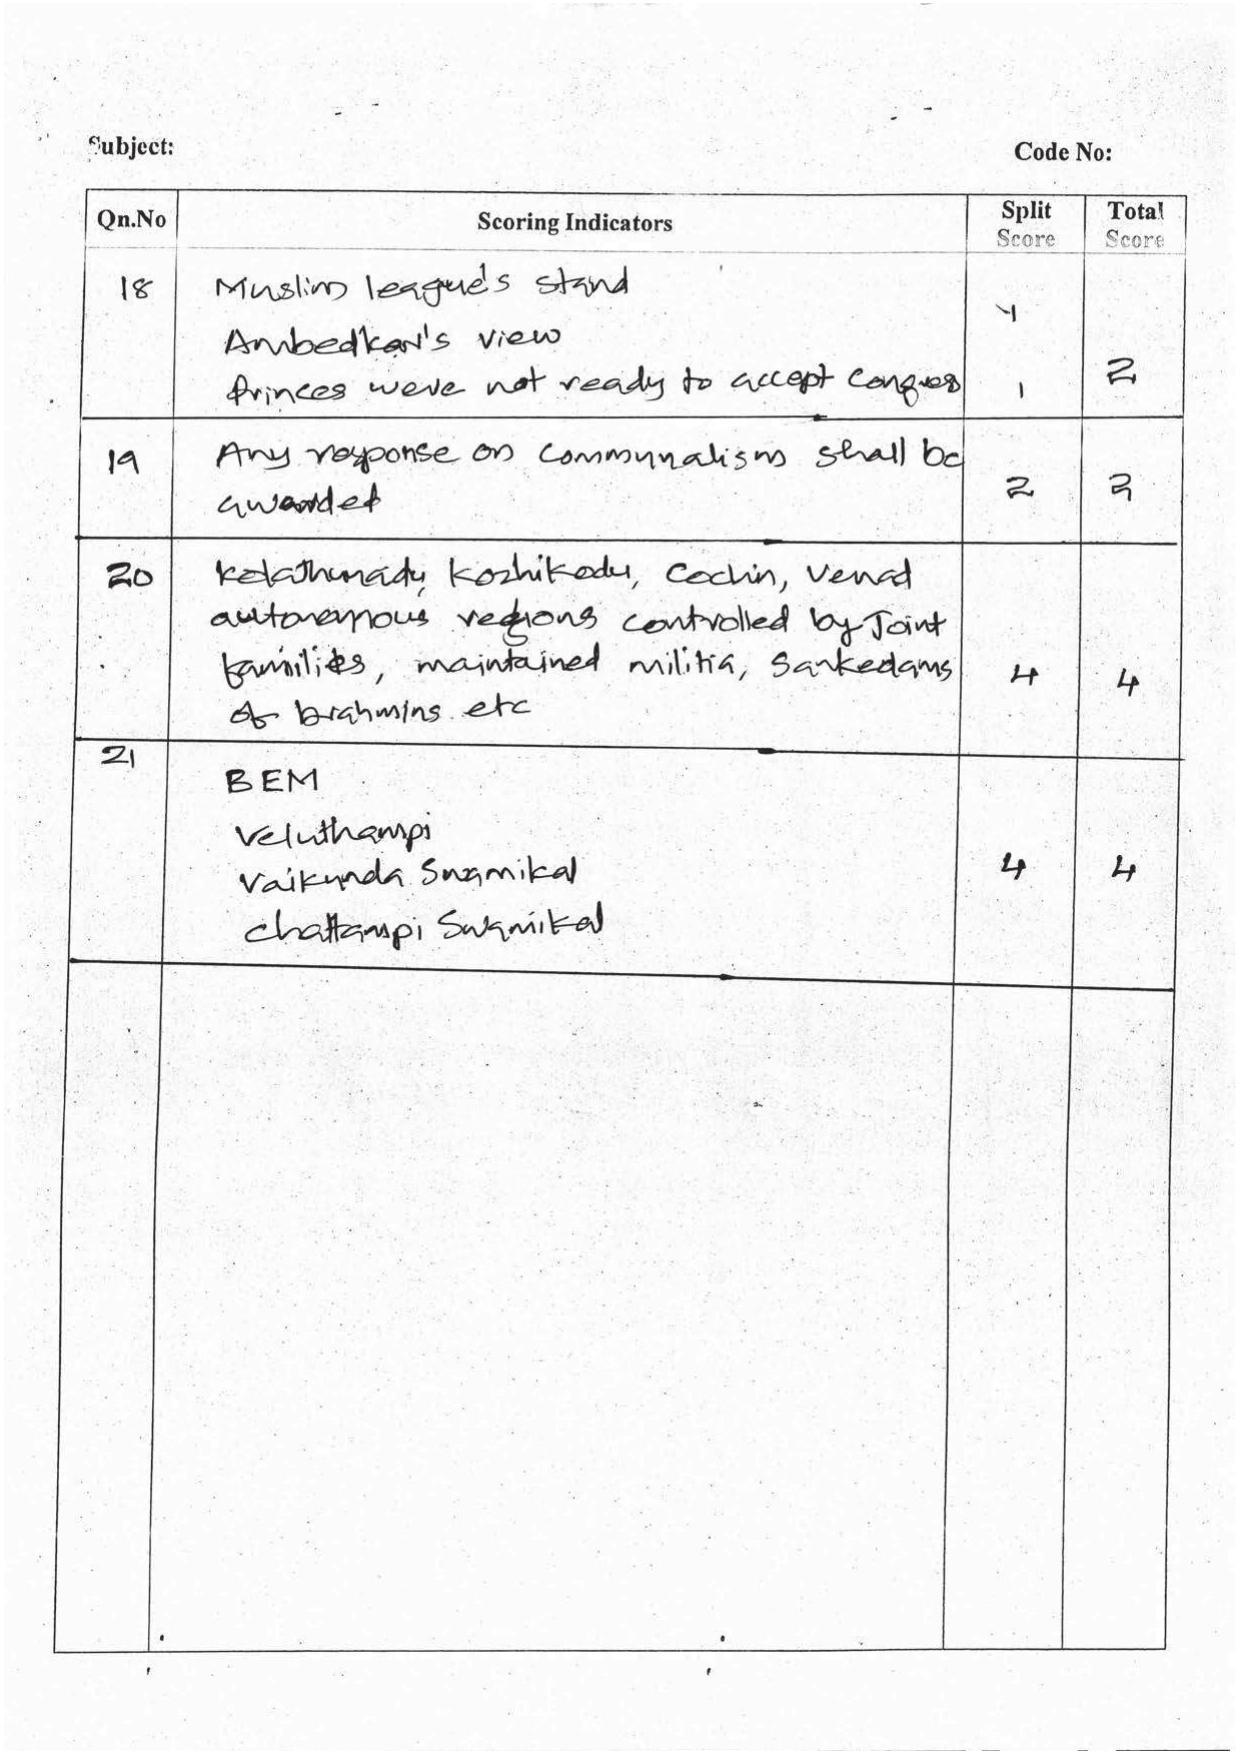 Subject:
Code No:
Qn.No Scoring Indicators Split Score Total Score
18 Muslim league's stand 1
Ambedkar's view
Princes were not ready to accept Congress 1 2
19 Any response on communalism shall be
awarded 2 2
20 Kolathunadu, Kozhikodu, Cochin, Venad
autonomous regions controlled by Joint
families, maintained militia, Sankedams 4 4
of brahmins etc
21
BEM
Veluthampi
Vaikunda Swamikal 4 4
Chattampi Swamikal